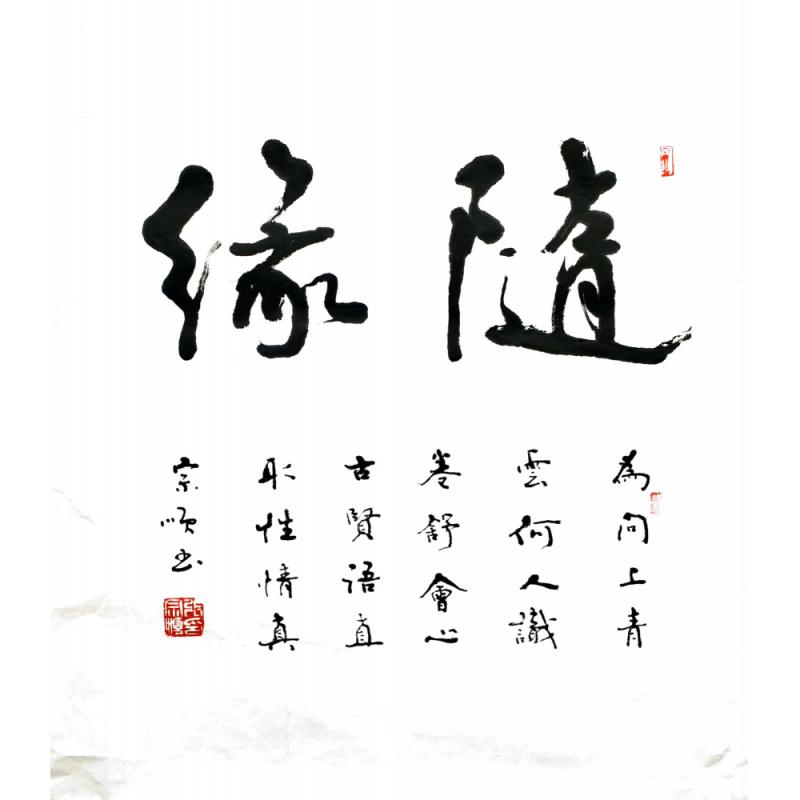 隨緣
為問上青
雲何人識
卷舒會心
古賢語直
取性情真
宗順书